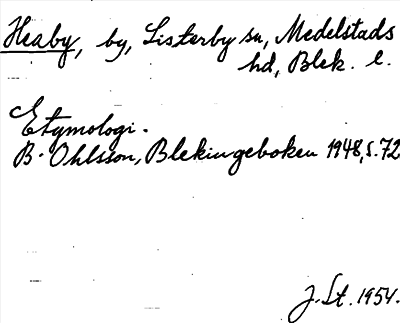 Heaby, by, Listerby sn, Medelstads
hd, Blek. l.
Etymologi.
B. Ohlsson, Blekingeboken 1948, s. 72
J. St. 1954.